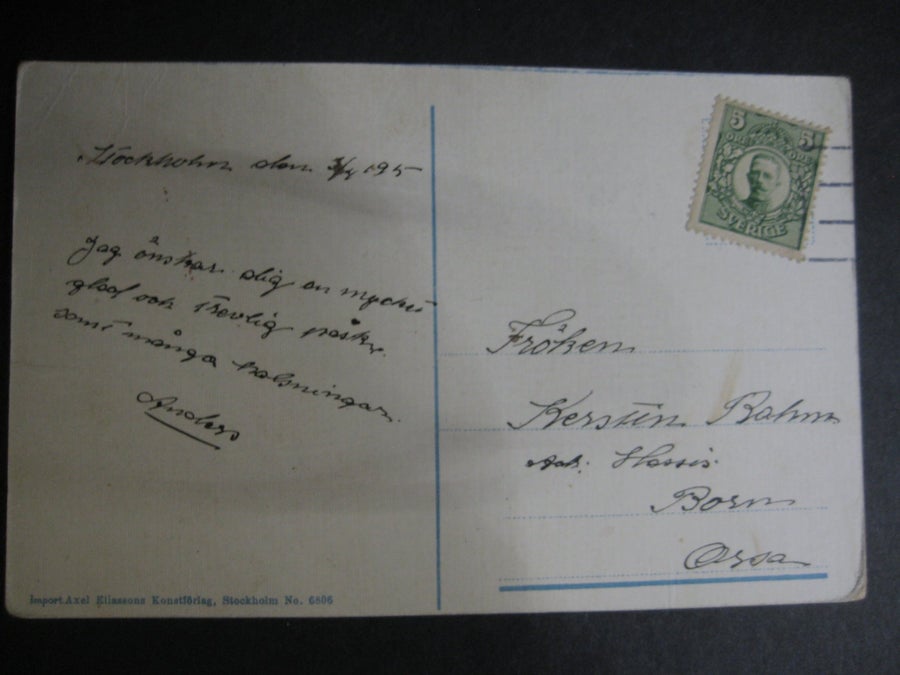 Stockholm den 3/4 195
Jag önskar dig en mycket
glad och trevlig påsk.
samt många hälsningar.
Anders
Import. Axel Eliassons Konstförlag, Stockholm No. 6806
5 5
ÖRE ÖRE
SVERIGE
Fröken
Kerstin Rahm
Adr. Hassis
Born
Orsa